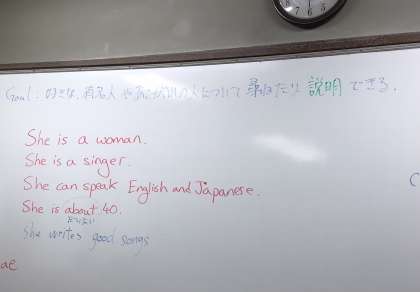 Goal: 好きな、有名人や について 尋ねたり 説明 できる.
She is a woman.
She is a singer.
She can speak English and Japanese.
She is about 40.
だいたい
She writes good songs
ae